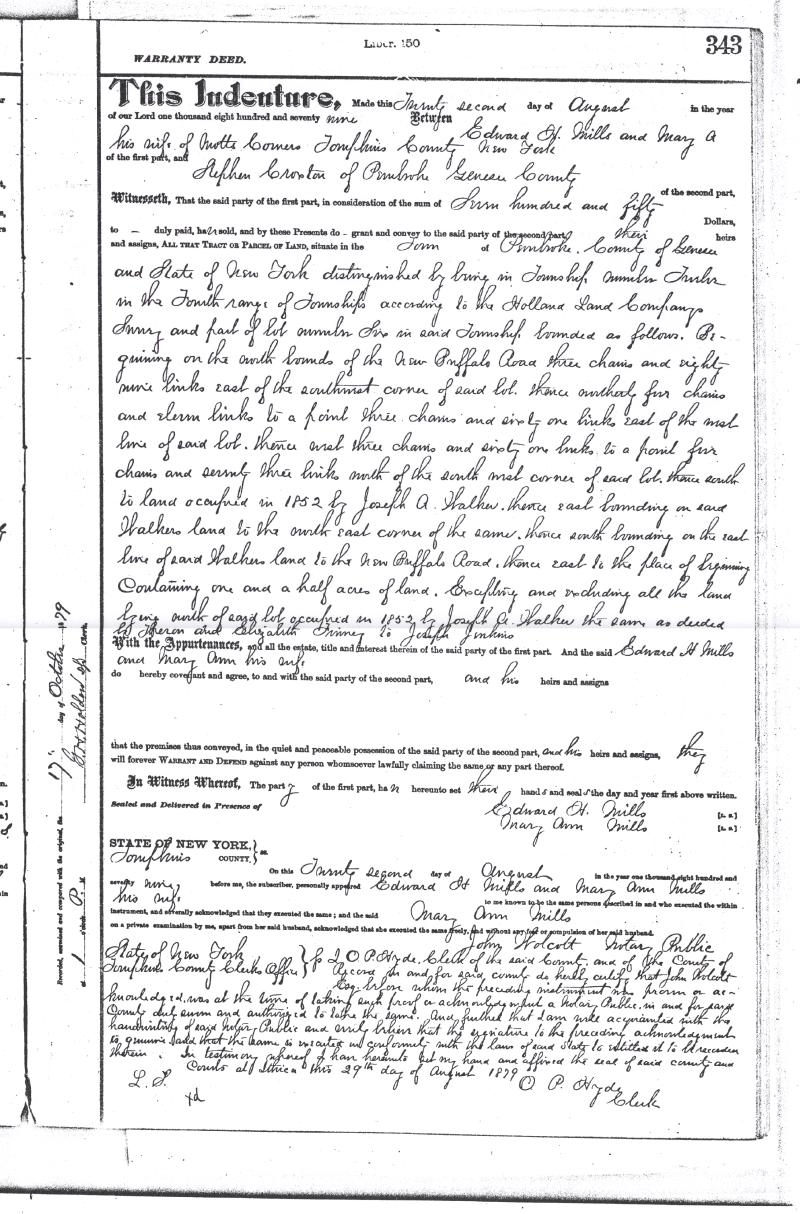 Liber. 150
343
WARRANTY DEED.
This Indenture, Made this Twenty second day of August in the year
of our Lord one thousand eight hundred and seventy nine Between Edward H. Mills and Mary A
his wife of Motts Corners Tompkins County New York
of the first part, and Stephen Croxton of Pembroke Genesee County
of the second part,
Witnesseth, That the said party of the first part, in consideration of the sum of Seven hundred and fifty
Dollars,
to — duly paid, have sold, and by these Presents do — grant and convey to the said party of the second part, their heirs
and assigns, ALL THAT TRACT OR PARCEL OF LAND, situate in the Town of Pembroke. County of Genesee
and State of New York distinguished by being in Township number Twelve
in the Fourth range of Townships according to the Holland Land Companys
Survey and part of lot number Six in said Township bounded as follows. Be-
ginning on the north bounds of the New Buffalo Road three chains and eighty
nine links east of the southwest corner of said lot. thence northerly four chains
and eleven links to a point three chains and sixty one links east of the west
line of said lot. thence west three chains and sixty one links to a point four
chains and seventy three links north of the south west corner of said lot. thence south
to land occupied in 1852 by Joseph A. Walker. thence east bounding on said
Walkers land to the north east corner of the same. thence south bounding on the east
line of said Walkers land to the New Buffalo Road. thence east to the place of beginning
Containing one and a half acres of land. Excepting and excluding all the land
lying north of said lot occupied in 1852 by Joseph A. Walker the same as deeded
by Theron and Elizabeth Finney to Joseph Jenkins
With the Appurtenances, and all the estate, title and interest therein of the said party of the first part. And the said Edward H Mills
and Mary Ann his wife
do hereby covenant and agree, to and with the said party of the second part, and his heirs and assigns
that the premises thus conveyed, in the quiet and peaceable possession of the said party of the second part, and his heirs and assigns, they
will forever WARRANT AND DEFEND against any person whomsoever lawfully claiming the same or any part thereof.
In Witness Whereof, The party of the first part, have hereunto set their hands and seals the day and year first above written.
Sealed and Delivered in Presence of
Edward H. Mills [L. S.]
Mary Ann Mills [L. S.]
STATE OF NEW YORK,
Tompkins COUNTY, } ss.
On this Twenty second day of August in the year one thousand eight hundred and
seventy nine, before me, the subscriber, personally appeared Edward H Mills and Mary Ann Mills
his wife to me known to be the same persons described in and who executed the within
instrument, and severally acknowledged that they executed the same; and the said Mary Ann Mills
on a private examination by me, apart from her said husband, acknowledged that she executed the same freely, and without any fear or compulsion of her said husband.
John Wolcott Notary Public
State of New York
Tompkins County Clerks Office } I O P Hyde, Clerk of the said County, and of the County of
Record in and for said county do hereby certify that John Wolcott
Esq. before whom the preceding instrument was proven or ac-
knowledged, was at the time of taking such proof or acknowledgment a Notary Public in and for said
County duly sworn and authorized to take the same. And further that I am well acquainted with the
handwriting of said Notary Public and verily believe that the signature to the preceding acknowledgment
is genuine and that the same is executed in conformity with the laws of said State to entitled it to be recorded
therein. In testimony whereof I have hereunto set my hand and affixed the seal of said county and
Courts at Ithaca this 29th day of August 1879
L. S. O P. Hyde
xd Clerk
Recorded, examined and compared with the original, the 17 day of October 1879
at 1 o'clock P. M. Clerk